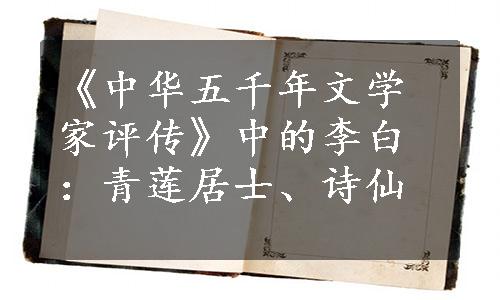 《中华五千年文学
家评传》中的李白
：青莲居士、诗仙